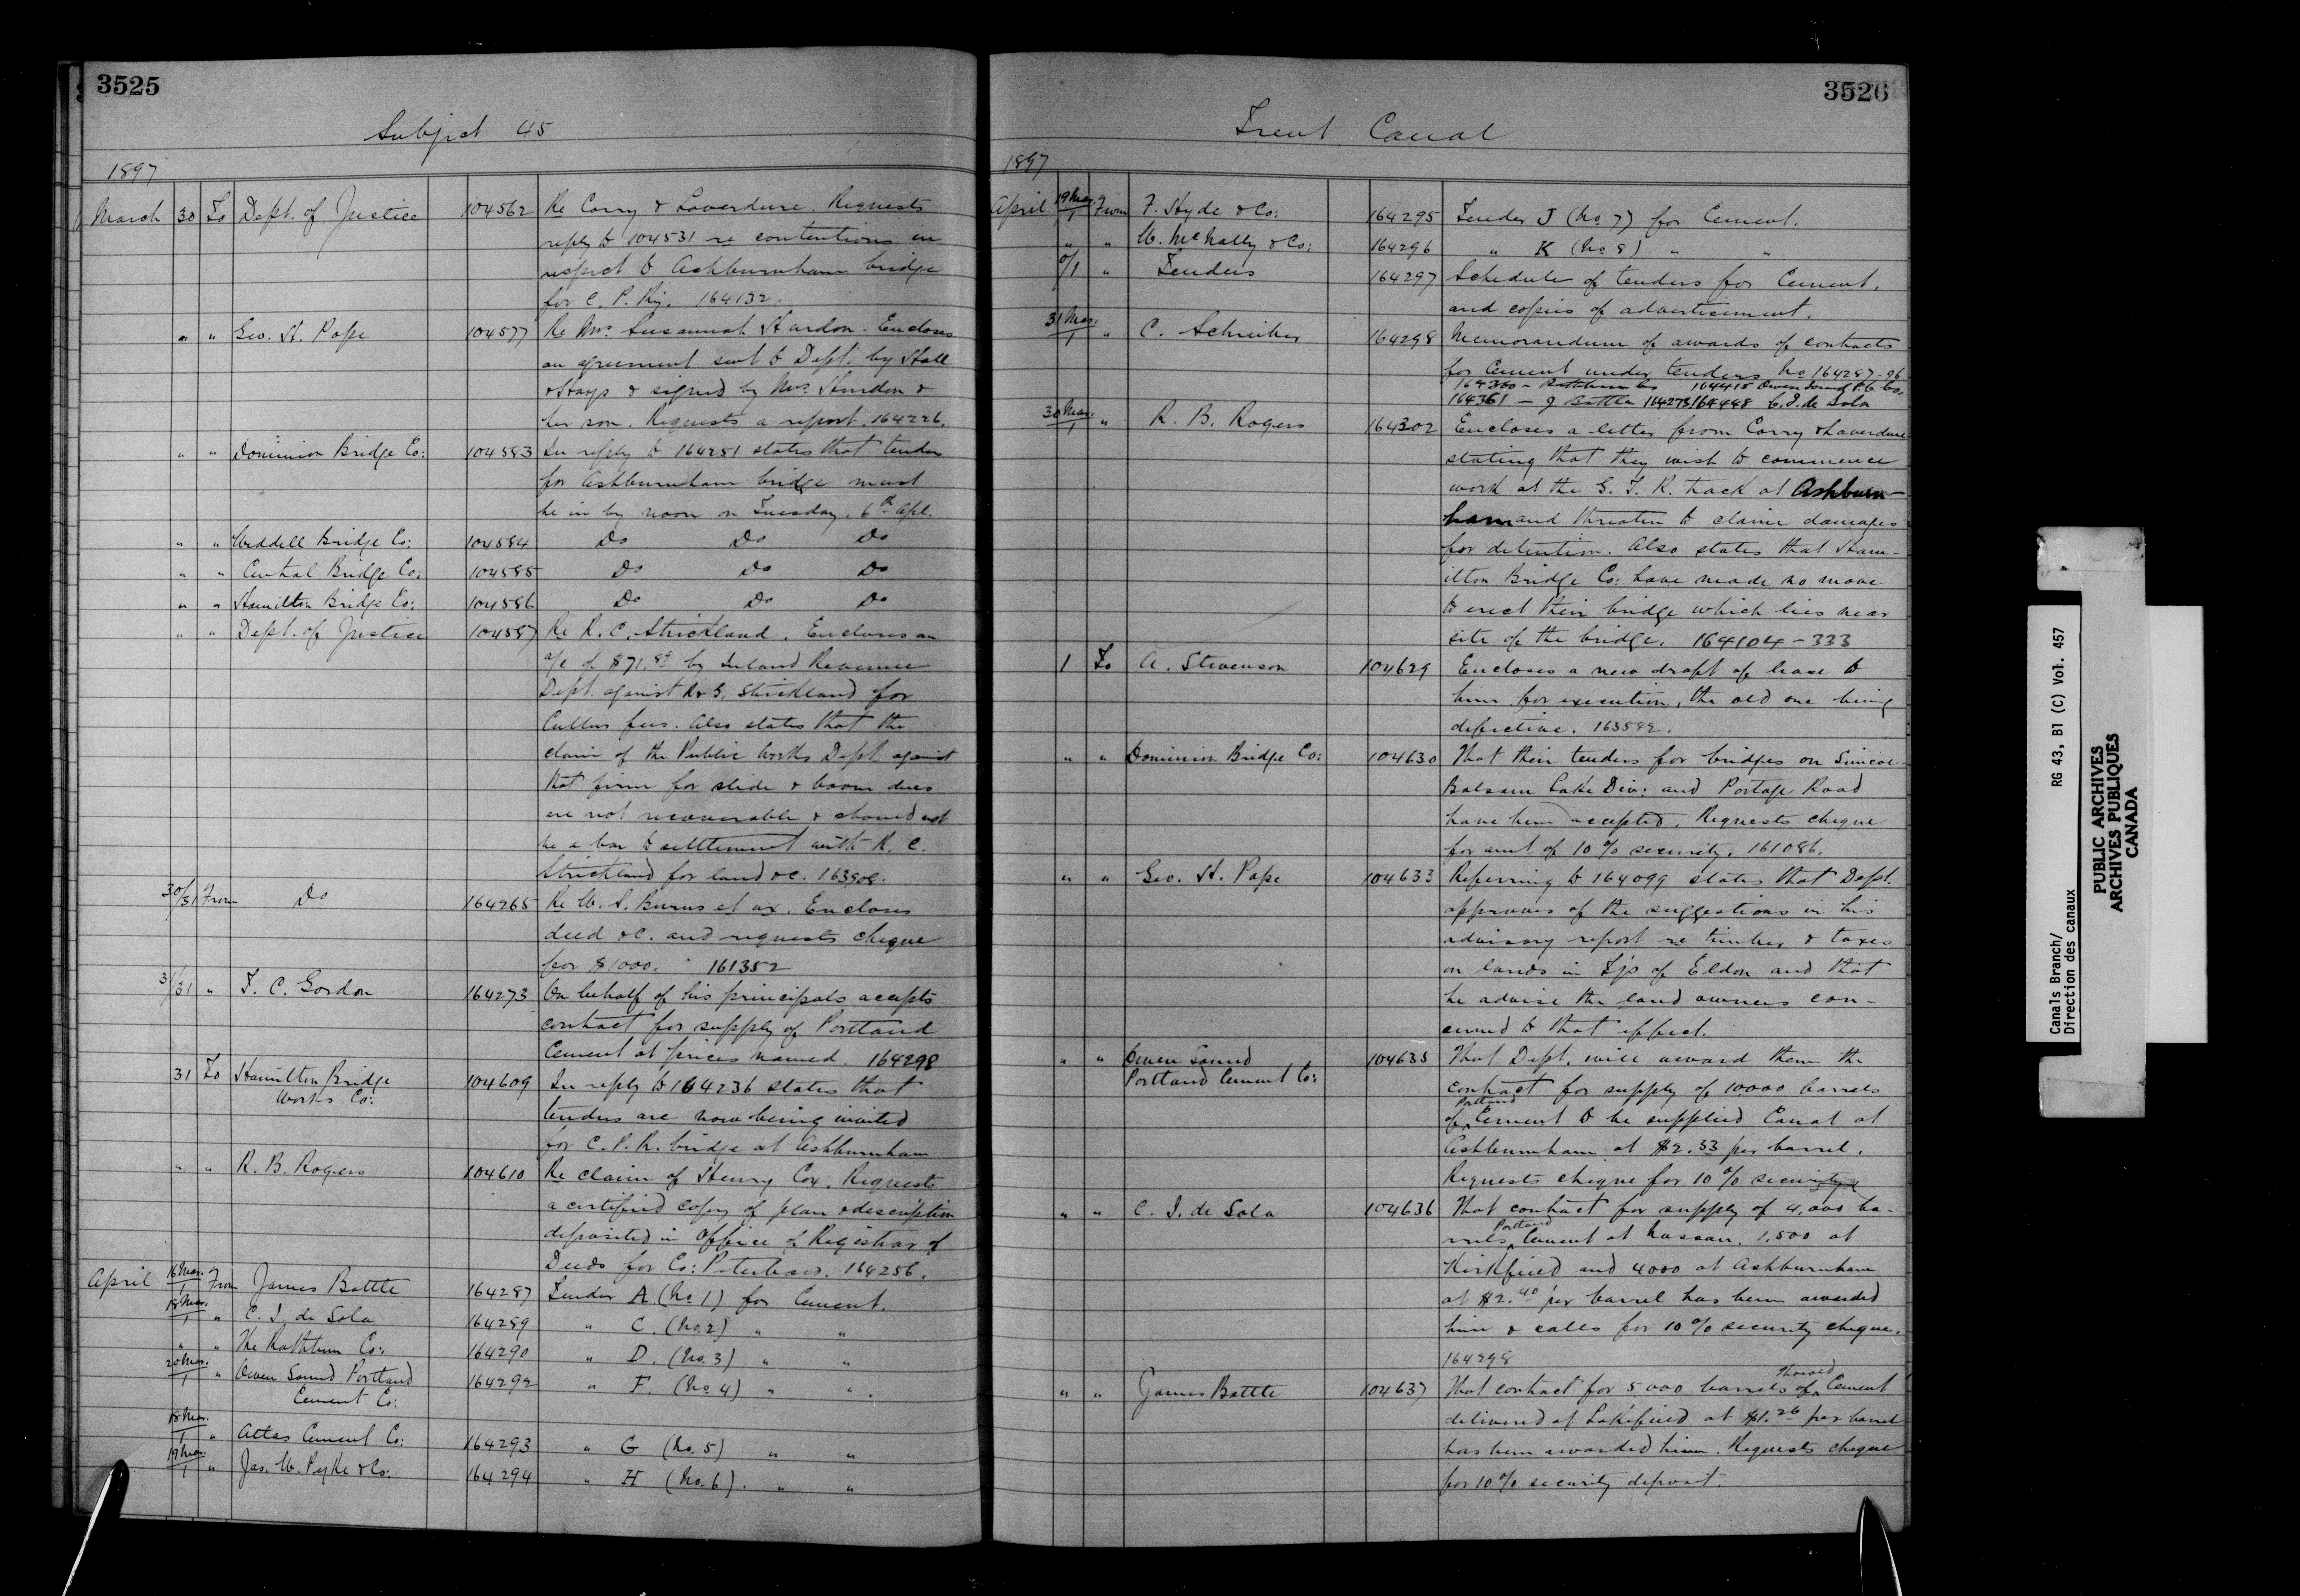 3525
Subject 45
1897
March 30 To Dept. of Justice 104562 Re Corry & Laverdure. Requests
reply to 104531 re contentions in
respect to Ashburnham bridge
for C. P. Ry. 164132.
" " Geo. H. Pope 104577 Re Mrs. Susannah Hurdon. Encloses
an agreement sent to Dept. by Hall
& Hays & signed by Mrs. Hurdon &
her son. Requests a report. 164226.
" " Dominion Bridge Co: 104583 In reply to 164251 states that tender
for Ashburnham bridge must
be in by noon on Tuesday, 6th Apl.
" " Weddell Bridge Co: 104584 Do Do Do
" " Central Bridge Co: 104585 Do Do Do
" " Hamilton Bridge Co: 104586 Do Do Do
" " Dept. of Justice 104587 Re R. C. Strickland. Encloses an
a/c of $71. by Inland Revenue
Dept. against R & G. Strickland for
Cullers fees. Also states that the
claim of the Public Works Dept. against
that firm for slide & boom dues
are not recoverable & should not
be a bar to settlement with R. C.
Strickland for land &c. 163908.
30/31 From Do 164265 Re W. S. Burns et ux. Encloses
deed &c. and requests cheque
for $1000. 161352
31/31 " F. C. Gordon 164273 On behalf of his principals accepts
contract for supply of Portland
Cement at prices named. 164298
31 To Hamilton Bridge 104609 In reply to 164236 states that
Works Co:
tenders are now being invited
for C. P. R. bridge at Ashburnham
" " R. B. Rogers 104610 Re claim of Henry Cox. Requests
a certified copy of plan & description
deposited in Office of Registrar of
Deeds for Co: Peterboro. 164256.
April 16 Mar./1 From James Battle 164287 Tender A. (No. 1) for Cement.
18 Mar./1 " C. I. de Sola 164289 " C. (No. 2) " "
" " The Rathbun Co: 164290 " D. (No. 3) " "
20 Mar./1 " Owen Sound Portland 164292 " F. (No. 4) " " .
Cement Co:
18 Mar./1 " Atlas Cement Co: 164293 " G (No. 5) " "
19 Mar./1 " Jas. W. Pyke & Co. 164294 " H (No. 6). " "
3526
Trent Canal
1897
April 19 Mar./1 From F. Hyde & Co: 164295 Tender J (No. 7) for Cement.
" " W. McNally & Co: 164296 " K (No 8) " "
0/1 " Tenders 164297 Schedule of tenders for Cement,
and copies of advertisement.
31 Mar./1 " C. Schreiber 164298 Memorandum of awards of contracts
for Cement under tenders No 164287-96
164360 - Rathbun Co 164415 Owen Sound P. C. Co.
164361 - J Battle 164273 164448 C. I. de Sola
30 Mar./1 " R. B. Rogers 164302 Encloses a letter from Corry & Laverdure
stating that they wish to commence
work at the G. T. R. track at Ashburn-
ham and threaten to claim damages
for detention. Also states that Ham-
ilton Bridge Co: have made no move
to erect their bridge which lies near
site of the bridge. 164104-333
1 To A. Stevenson 104629 Encloses a new draft of lease to
him for execution, the old one being
defective. 163592.
" " Dominion Bridge Co: 104630 That their tenders for bridges on Simcoe
Balsam Lake Div: and Portage Road
have been accepted. Requests cheque
for amt of 10% security. 161086.
" " Geo. H. Pope 104633 Referring to 164099 states that Dept.
approves of the suggestions in his
advisory report re timber & taxes
on lands in Tp of Eldon and that
he advise the land owners con-
cerned to that effect.
" " Owen Sound 104635 That Dept. will award them the
Portland Cement Co:
contract for supply of 10,000 barrels
of Portland Cement to be supplied Canal at
Ashburnham at $2.33 per barrel.
Requests cheque for 10% security
" " C. I. de Sola 104636 That contract for supply of 4,000 ba-
rrels Portland Cement at Nassau, 1,500 at
Kirkfield and 4000 at Ashburnham
at $2.40 per barrel has been awarded
him & calls for 10% security cheque.
164298
" " James Battle 104637 That contract for 5000 barrels of Thorold Cement
delivered at Lakefield at $1.26 per barrel
has been awarded him. Requests cheque
for 10% security deposit.
Canals Branch/ RG 43, B1 (C) Vol. 457
Direction des canaux
PUBLIC ARCHIVES
ARCHIVES PUBLIQUES
CANADA